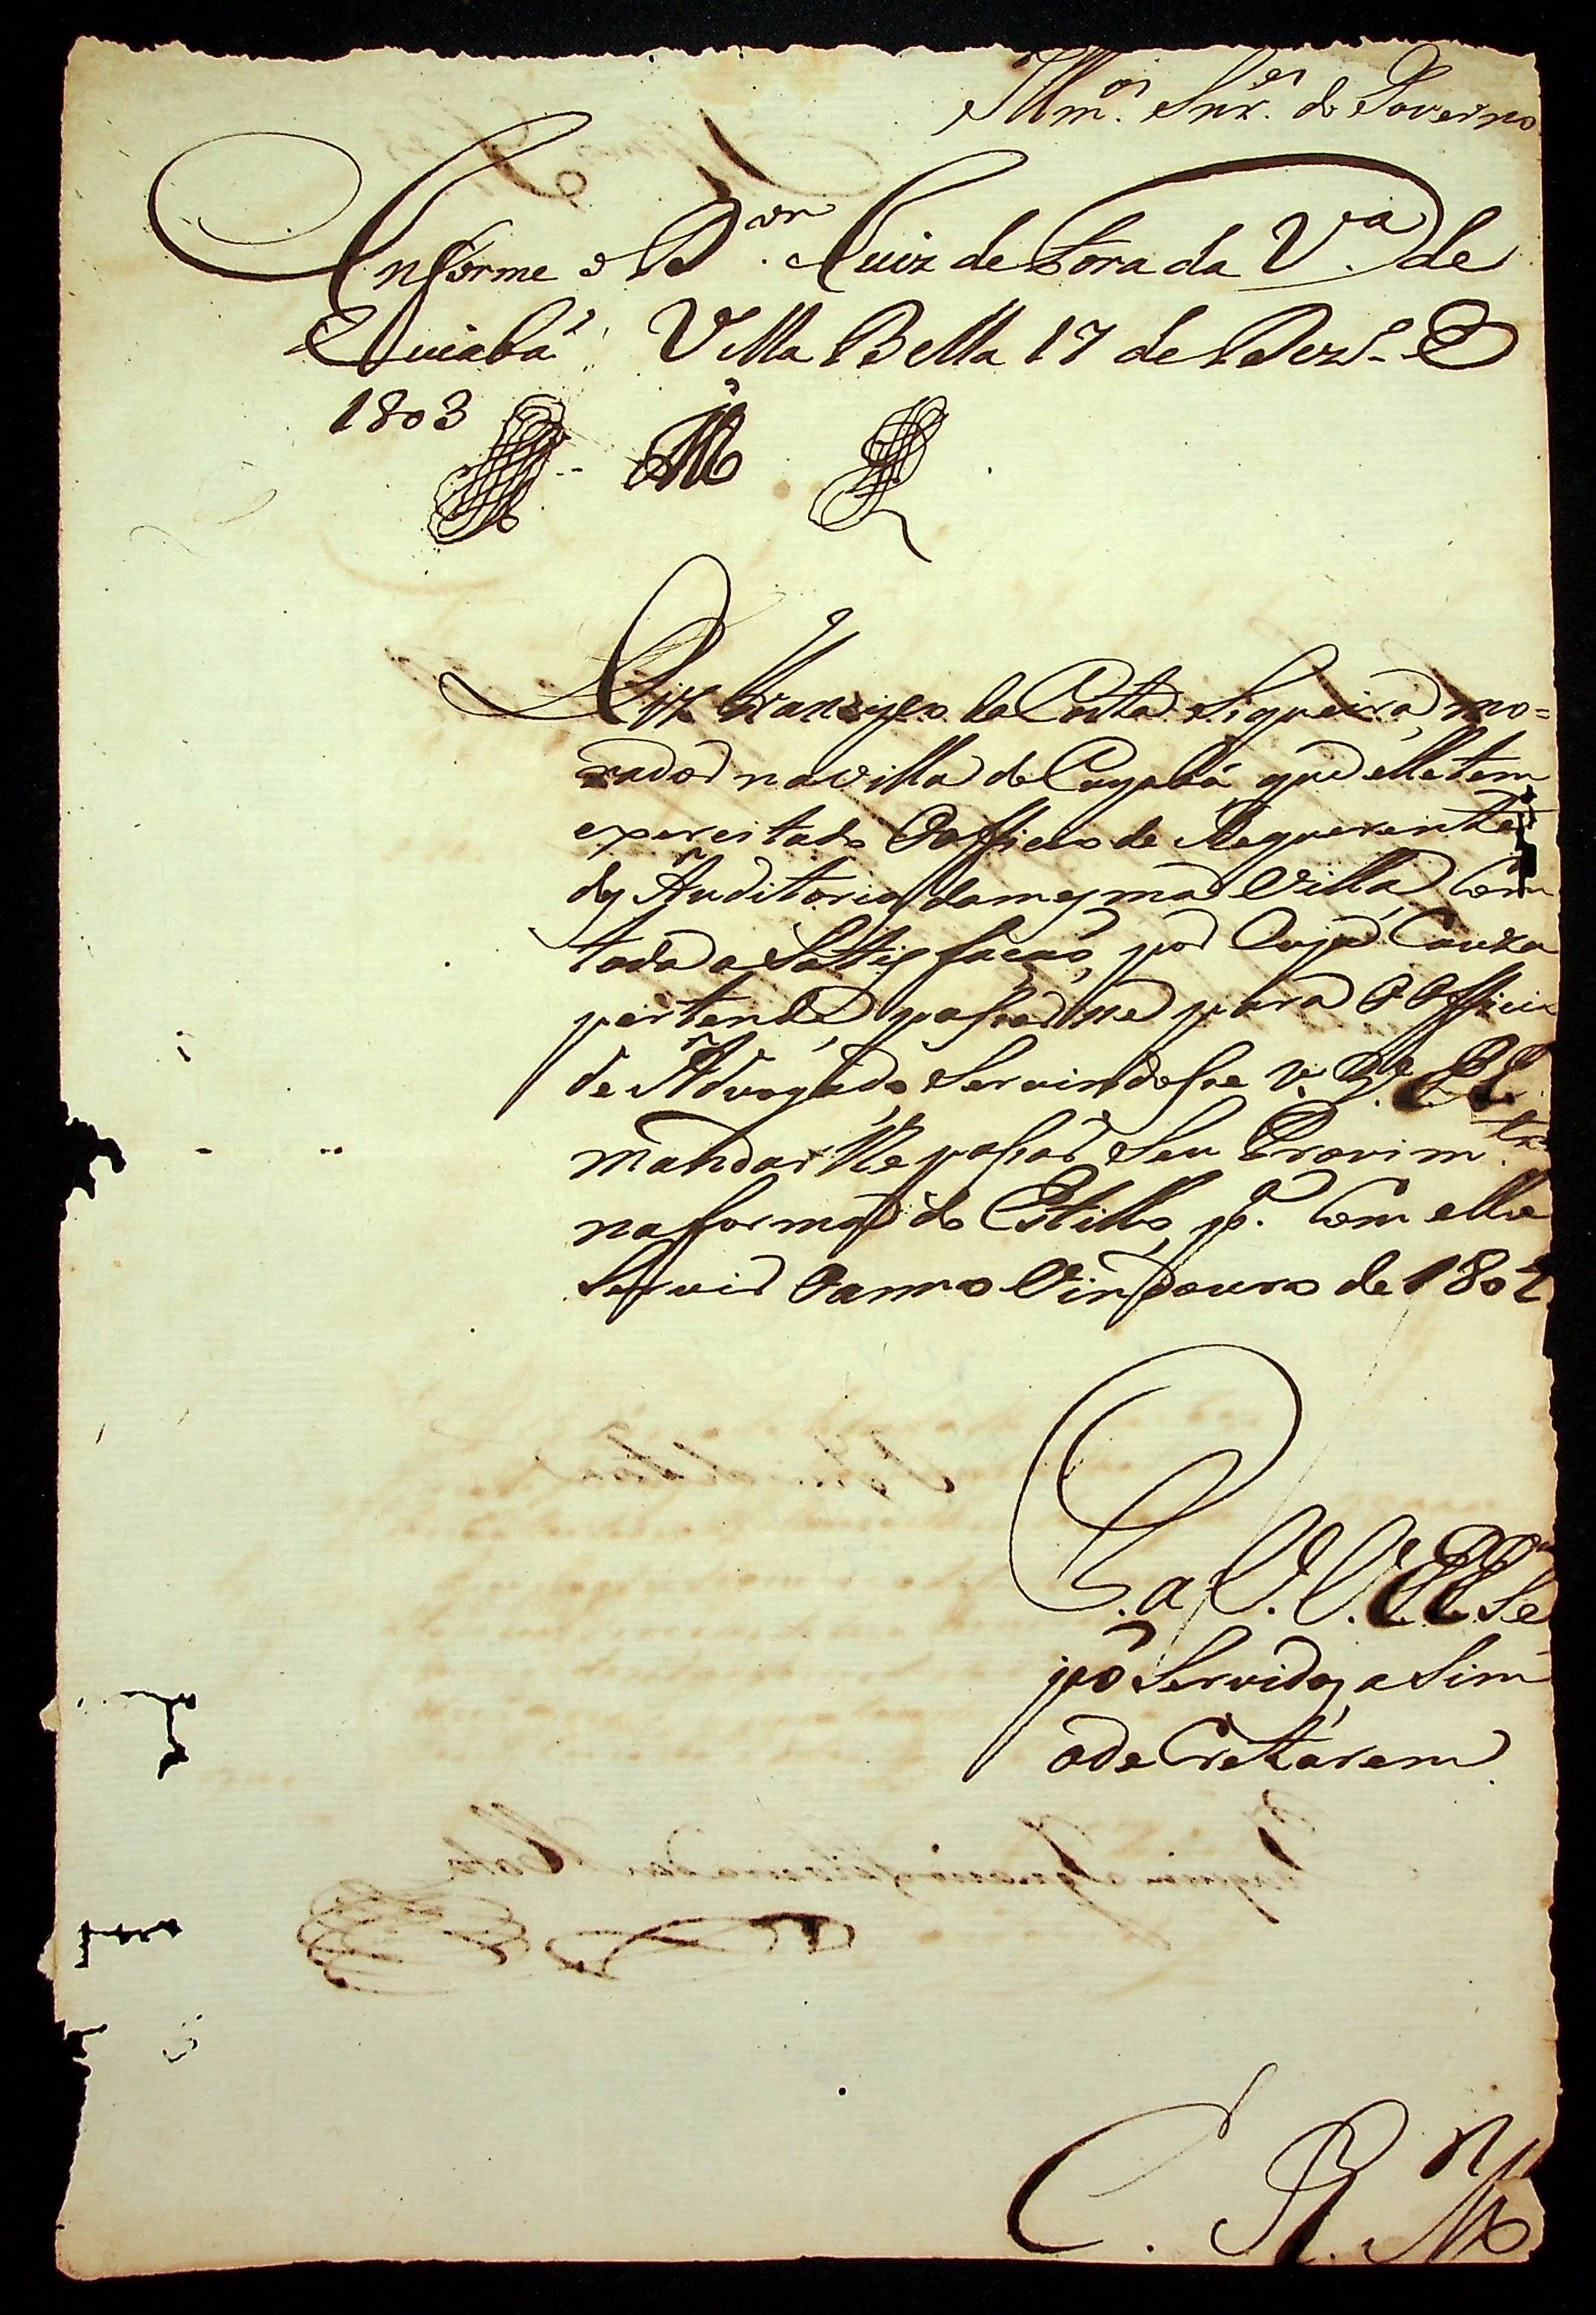 Illmos. Snres. do Governo
Informe o Dor. Juiz de Fora da Va. de
Cuiabá. Villa Bella 17 de Dezo. de
1803
M
Diz Francisco da Costa Siqueira, mo=
rador na villa de Cuyabá que elle tem
exercitado O officio de Requerente
dos Auditorios da mesma Villa, Com
toda a Sattisfacaõ, por Cuja Cauza
pertende passarse para O Officio
de Advogado Servindose V. Sas.
mandar lhe passar Seu Provimto.
na forma do Estillo, pa. Com elle
Servir O anno Vindouro de 1804
P. a V. V. S.S.as Se
jaõ Servidos, a Sim
o de Cretarem
E. R. M